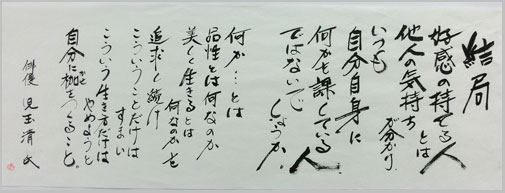 結局
好感の持てる人
とは
他人の気持ち
が分かり
いつも
自分自身に
何かを課している人
ではないで
しょうか。
何か…とは
品性とは何なのか
美しく生きるとは
何なのかを
追求し続け
こういうことだけは
すまい
こういう生き方だけは
やめようと
自分に枷をつくること。
かせ
俳優 児玉清氏